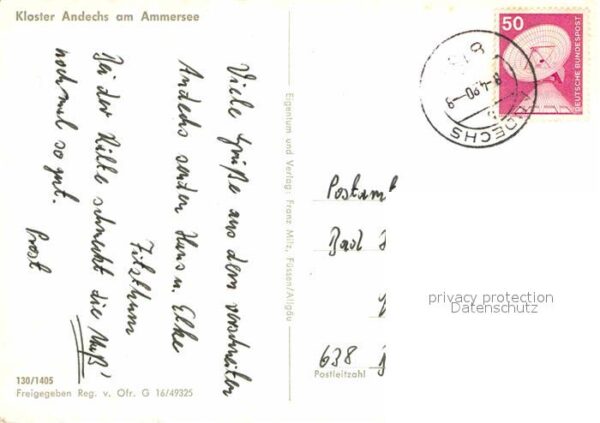 Kloster Andechs am Ammersee
Viele Grüße aus dem verschneiten
Andechs senden Hans u. Elke
Fitzthum
Bei der Kälte schmeckt die Maß'
nochmal so gut.
Prost
130/1405
Freigegeben Reg. v. Ofr. G 16/49325
Eigentum und Verlag: Franz Milz, Füssen/Allgäu
50
DEUTSCHE BUNDESPOST
ANDECHS
Postam
Bad
638
Postleitzahl
privacy protection
Datenschutz